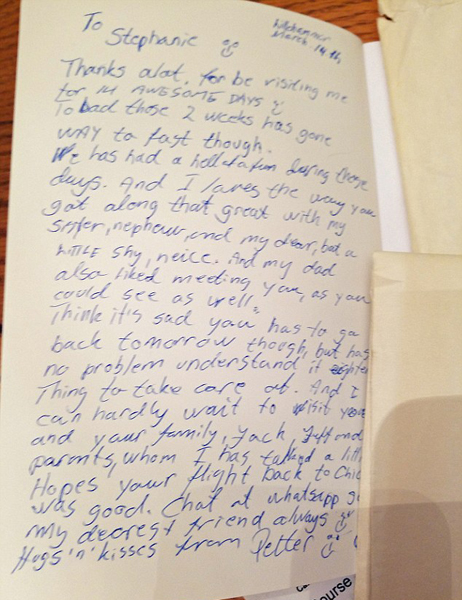 To Stephanie
March 14th,
Thanks alot, for be visiting me
for 14 AWESOME DAYS
To bad those 2 weeks has gone
WAY to fast though.
We has had a hellofafun during these
days. And I loves the way you
got along that great with my
sister, nephew, and my dear, but a
LITTLE shy, neice. And my dad
also liked meeting you, as you
could see as well.
Think it's sad you has to go
back tomorrow though, but has
no problem understand it
Thing to take care of. And I
can hardly wait to visit you
and your family, Zach, Jeff and
parents, whom I has talked a little
Hopes your flight back to Chic
was good. Chat at whatsapp
my dearest friend always
Hugs 'n' kisses from Petter
ourse